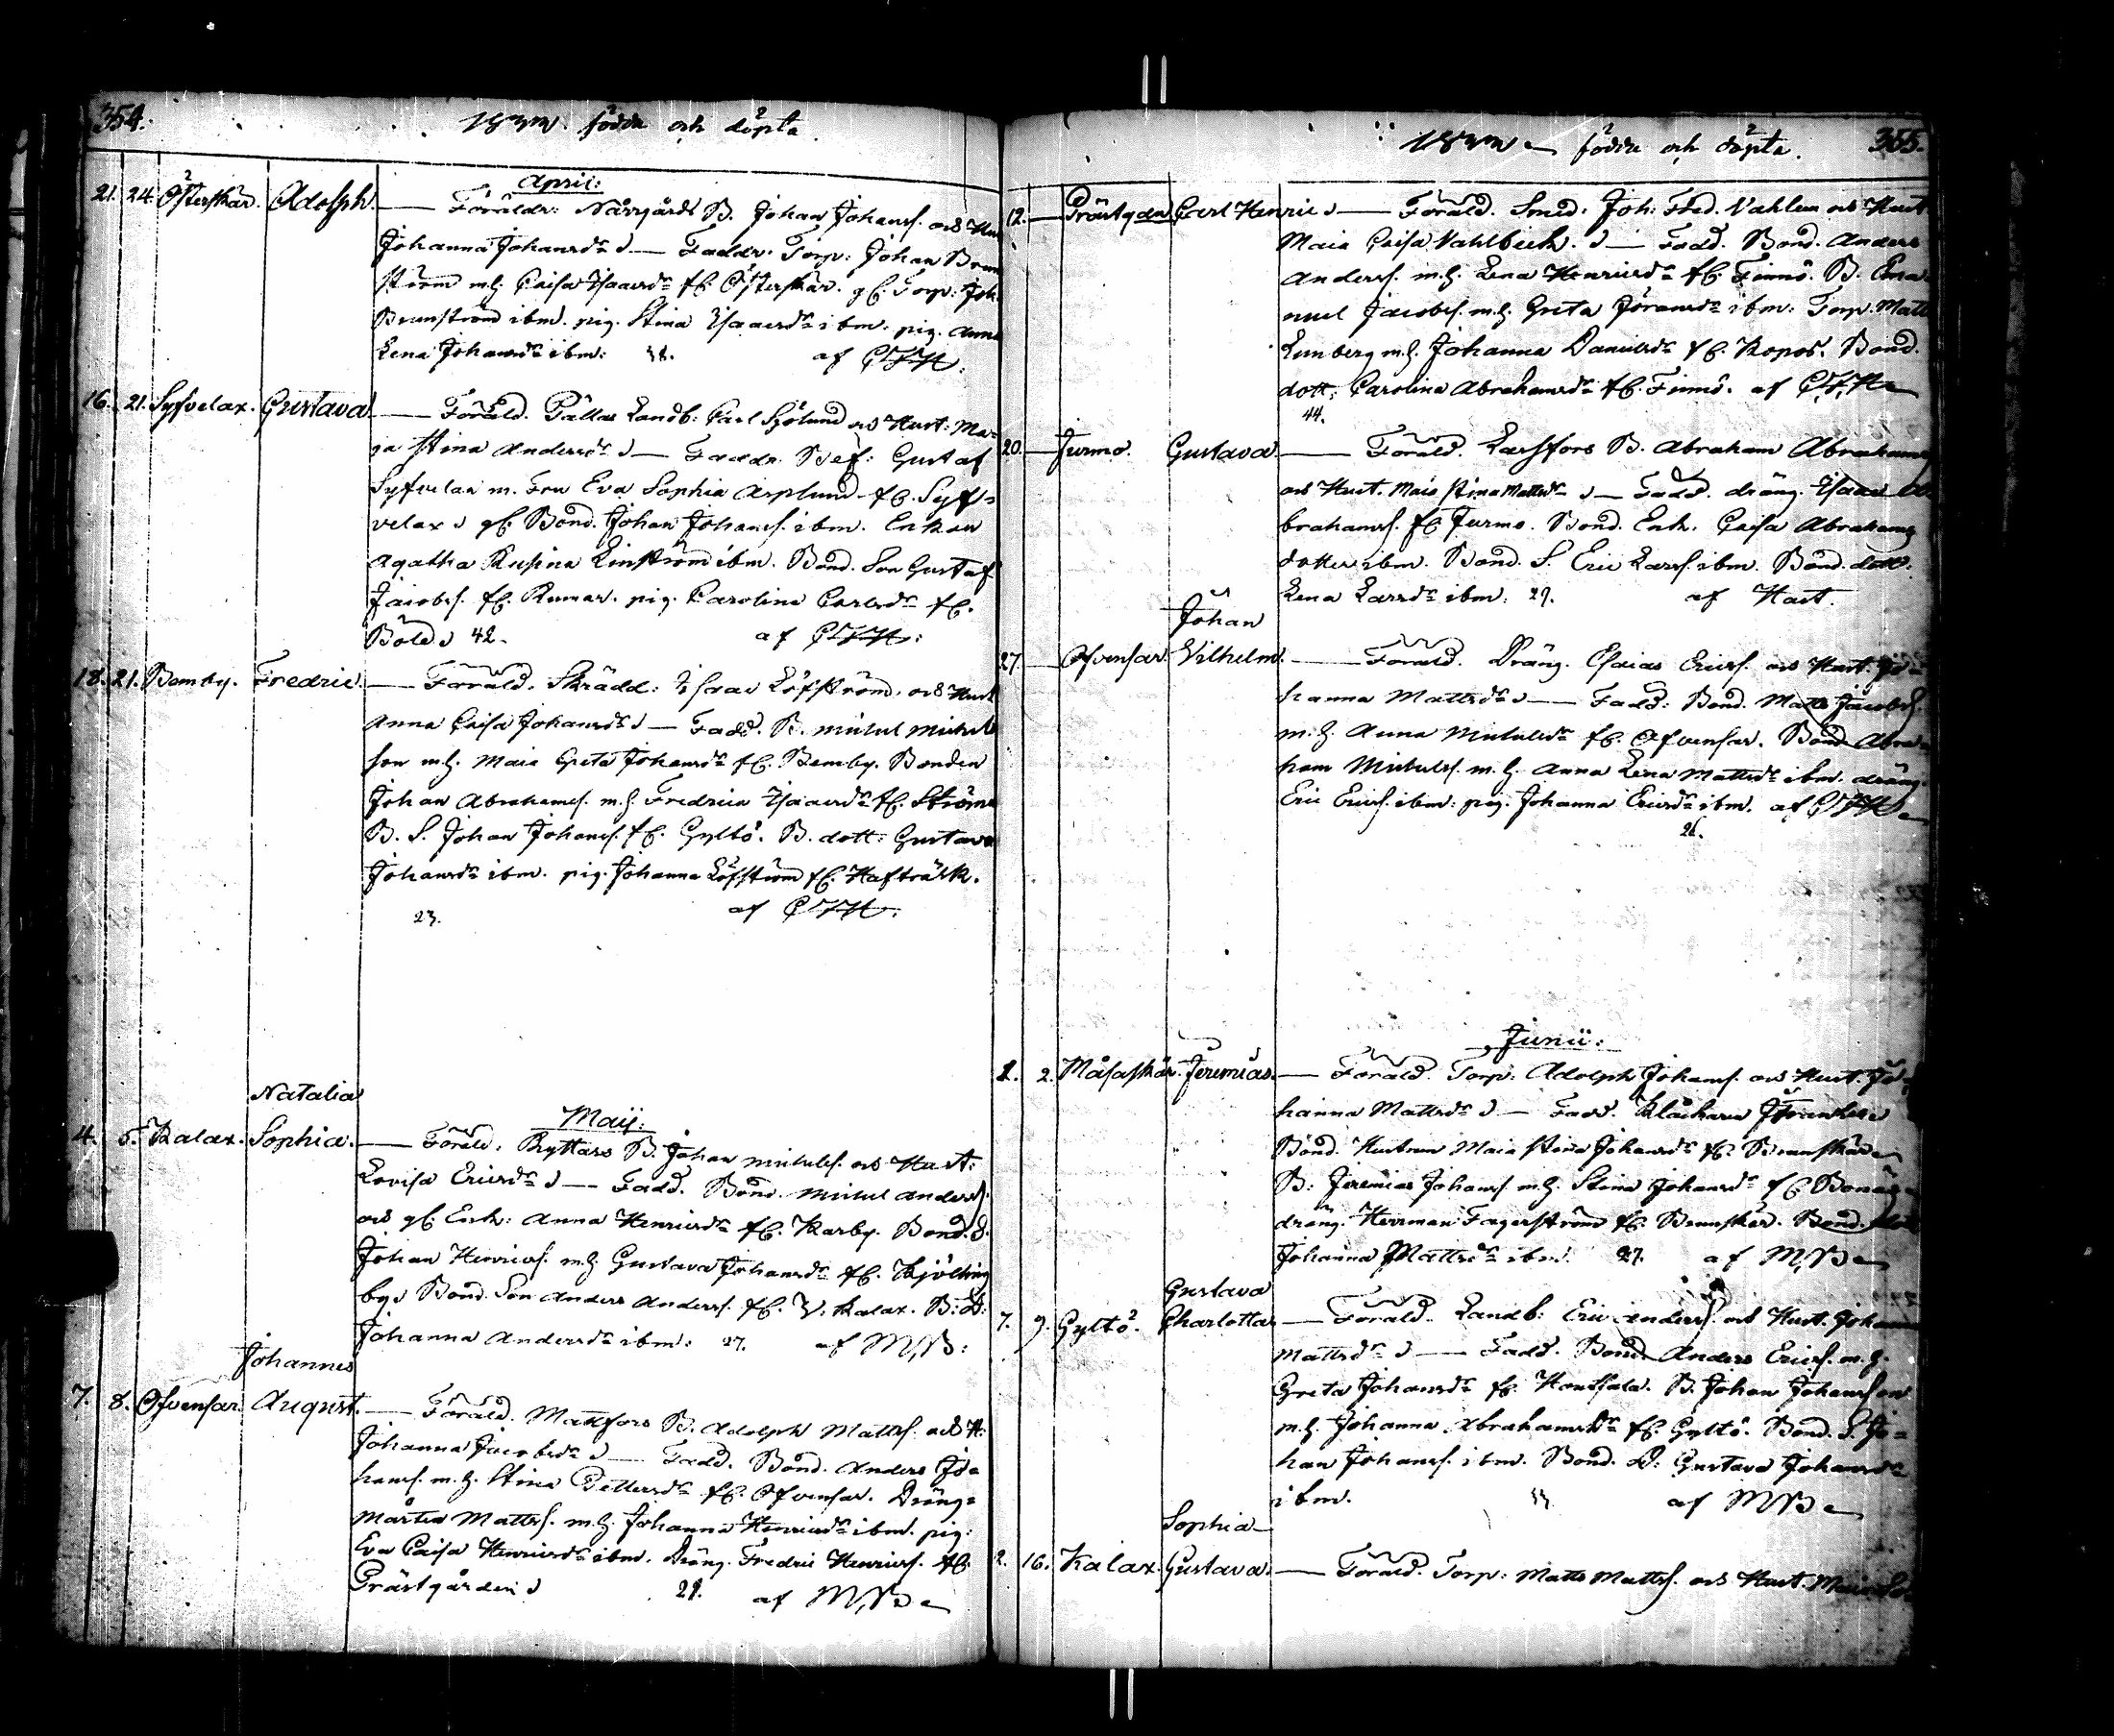 354.
1832. födde och döpta.
April:
21. 24. Österskär. Adolph. — Föräldr: Närgårds B. Johan Johanss. och Hust
Johanna Johansdr — Faddr. Torp: Johan Brun
ström m.h. Caisa Isaacsdr fr. Österskär. gl. Torp: Joh.
Brunström ibm. pig. Stina Isaacsdr ibm. pig. Anna
Lena Johansdr ibm: af CFH.
16. 21. Syfvelax. Gustava. — Föräld. Pällas Landb: Carl Sjölund och Hust: Ma=
ja Stina Andersdr — Faddr. Bef: Gustaf
Syfvelan m. Fru Eva Sophia Asplund fr. Syf=
velax gl. Bond. Johan Johanss. ibm. Enkan
Agatha Rusina Linström ibm. Bond. Son Gustaf
Jacobs. fr. Rumar. pig. Carolina Carlsdr fr.
Böle 42. af CFH:
18. 21. Bemby. Fredric. — Föräld. Skrädd: Isaac Löfström, och Hust
Anna Caisa Johansdr — Fadd. B. Michel Michels
son m.h. Maia Greta Johansdr fr. Bemby. Bonden
Johan Abrahams. m.h. Fredrica Isaacsdr fr. Ströms
B. S. Johan Johans. fr. Gyltö. B. dott: Gustava
Johansdr ibm. pig. Johanna Löfström fr. Hafträsk.
23. af CFH.
Maij:
Natalia
4. 5. Kalax. Sophia. — Föräld. Ryttars B. Johan Michels. och Hust:
Lovisa Ericsdr — Fadd. Bond. Michel Anderss.
och gl. Enk: Anna Henricsdr fr. Karby. Bond. S.
Johan Henrics. m.h. Gustava Johansdr fr. Kjölling
by Bond. Son Anders Anderss. fr. Kalax. B: D:
Johanna Andersdr ibm: 27. af M,B:
Johannes
7. 8. Ofvensar. August. — Föräld. Mattfors B. Adolph Matts. och H:
Johanna Jacobsdr — Fadd. Bond. Anders Jo=
hans. m.h. Stina Pettersdr fr. Ofvensar. Dräng=
Mårten Matts. m.h. Johanna Henricsdr ibm. pig:
Eva Caisa Henricsdr ibm. Dräng. Fredric Henrics. fr.
Prästgården 29. af M,B
1832 födde och döpta. 355.
12. — Prästgdn Carl Henric — Föräld. Smed: Joh: Fred. Vahlen och Hust
Maia Caisa Vahlbeck. — Fadd. Bond. Anders
Anderss. m.h. Lena Henricsdr fr. Finnö. B. Ema=
nuel Jacobs. m.h. Greta Göransdr ibm: Torp. Matts
Lunberg m.h. Johanna Danielsdr fr. Kopos. Bond.
dott: Carolina Abrahamsdr fr. Finnö. af C,F,H
44.
20. — Jurmo. Gustava. — Föräld. Larsfors B. Abraham Abrahams
och Hust. Maia Stina Mattsdr — Fadd. dräng. Isaac A
brahams. fr. Jurmo. Bond. Enk. Caisa Abrahams
dotter ibm. Bond. S. Eric Lars. ibm. Bond. dott.
Lena Larsdr ibm: 29. af Hast.
Johan
27. — Ofvensar. Vilhelm. — Föräld. Dräng. Esaias Erics. och Hust. Jo=
hanna Mattsdr — Fadd: Bond. Matts Jacobs.
m.h. Anna Michelsdr fr. Ofvensar. Bond Abra=
ham Michels. m.h. Anna Lena Mattsdr ibm. dräng
Eric Erics. ibm: pig. Johanna Ericsdr ibm. af CFH
26.
Junii:
1. 2. Måsaskär. Jeremias. — Föräld. Torp: Adolph Johans. och Hust. Jo=
hanna Mattsdr — Fadd. Klockaren
Bond. Hustrun Maia Stina Johansdr fr. Brunskär
B: Jeremias Johans. m.h. Stina Johansdr fr.
dräng. Herrman Fagerström fr. Brunskär. Bond.
Johanna Mattsdr ibm. 27. af M,B
Gustava
7. 9. Gyltö. Charlotta — Föräld. Landb: Eric Anderss. och Hust. Johanna
Mattsdr — Fadd. Bond. Anders Erics. m.h.
Greta Johansdr fr. Houtsala. B. Johan Johansson
m.h. Johanna Abrahamsdr fr. Gyltö. Bond. S. Jo=
han Johans. ibm. Bond. D: Gustava Johansdr
ibm. 33. af M,B
Sophia
16. Kalax. Gustava. — Föräld. Torp: Matts Matts. och Hust. Maia